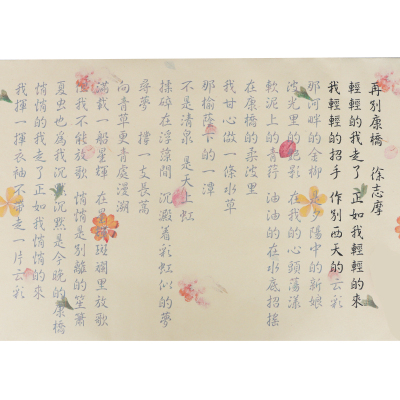 再別康橋 徐志摩
輕輕的我走了 正如我輕輕的來
我輕輕的招手 作別西天的云彩
那河畔的金柳 是夕陽中的新娘
波光里的艷影 在我的心頭蕩漾
軟泥上的青荇 油油的在水底招搖
在康橋的柔波里
我甘心做一條水草
那榆蔭下的一潭
不是清泉 是天上虹
揉碎在浮藻間 沉澱着彩虹似的夢
尋夢 撐一支長篙
向青草更青處漫溯
滿載一船星輝 在星輝斑斕里放歌
但我不能放歌 悄悄是別離的笙簫
夏虫也為我沉默 沉默是今晚的康橋
悄悄的我走了 正如我悄悄的來
我揮一揮衣袖 不帶走一片云彩